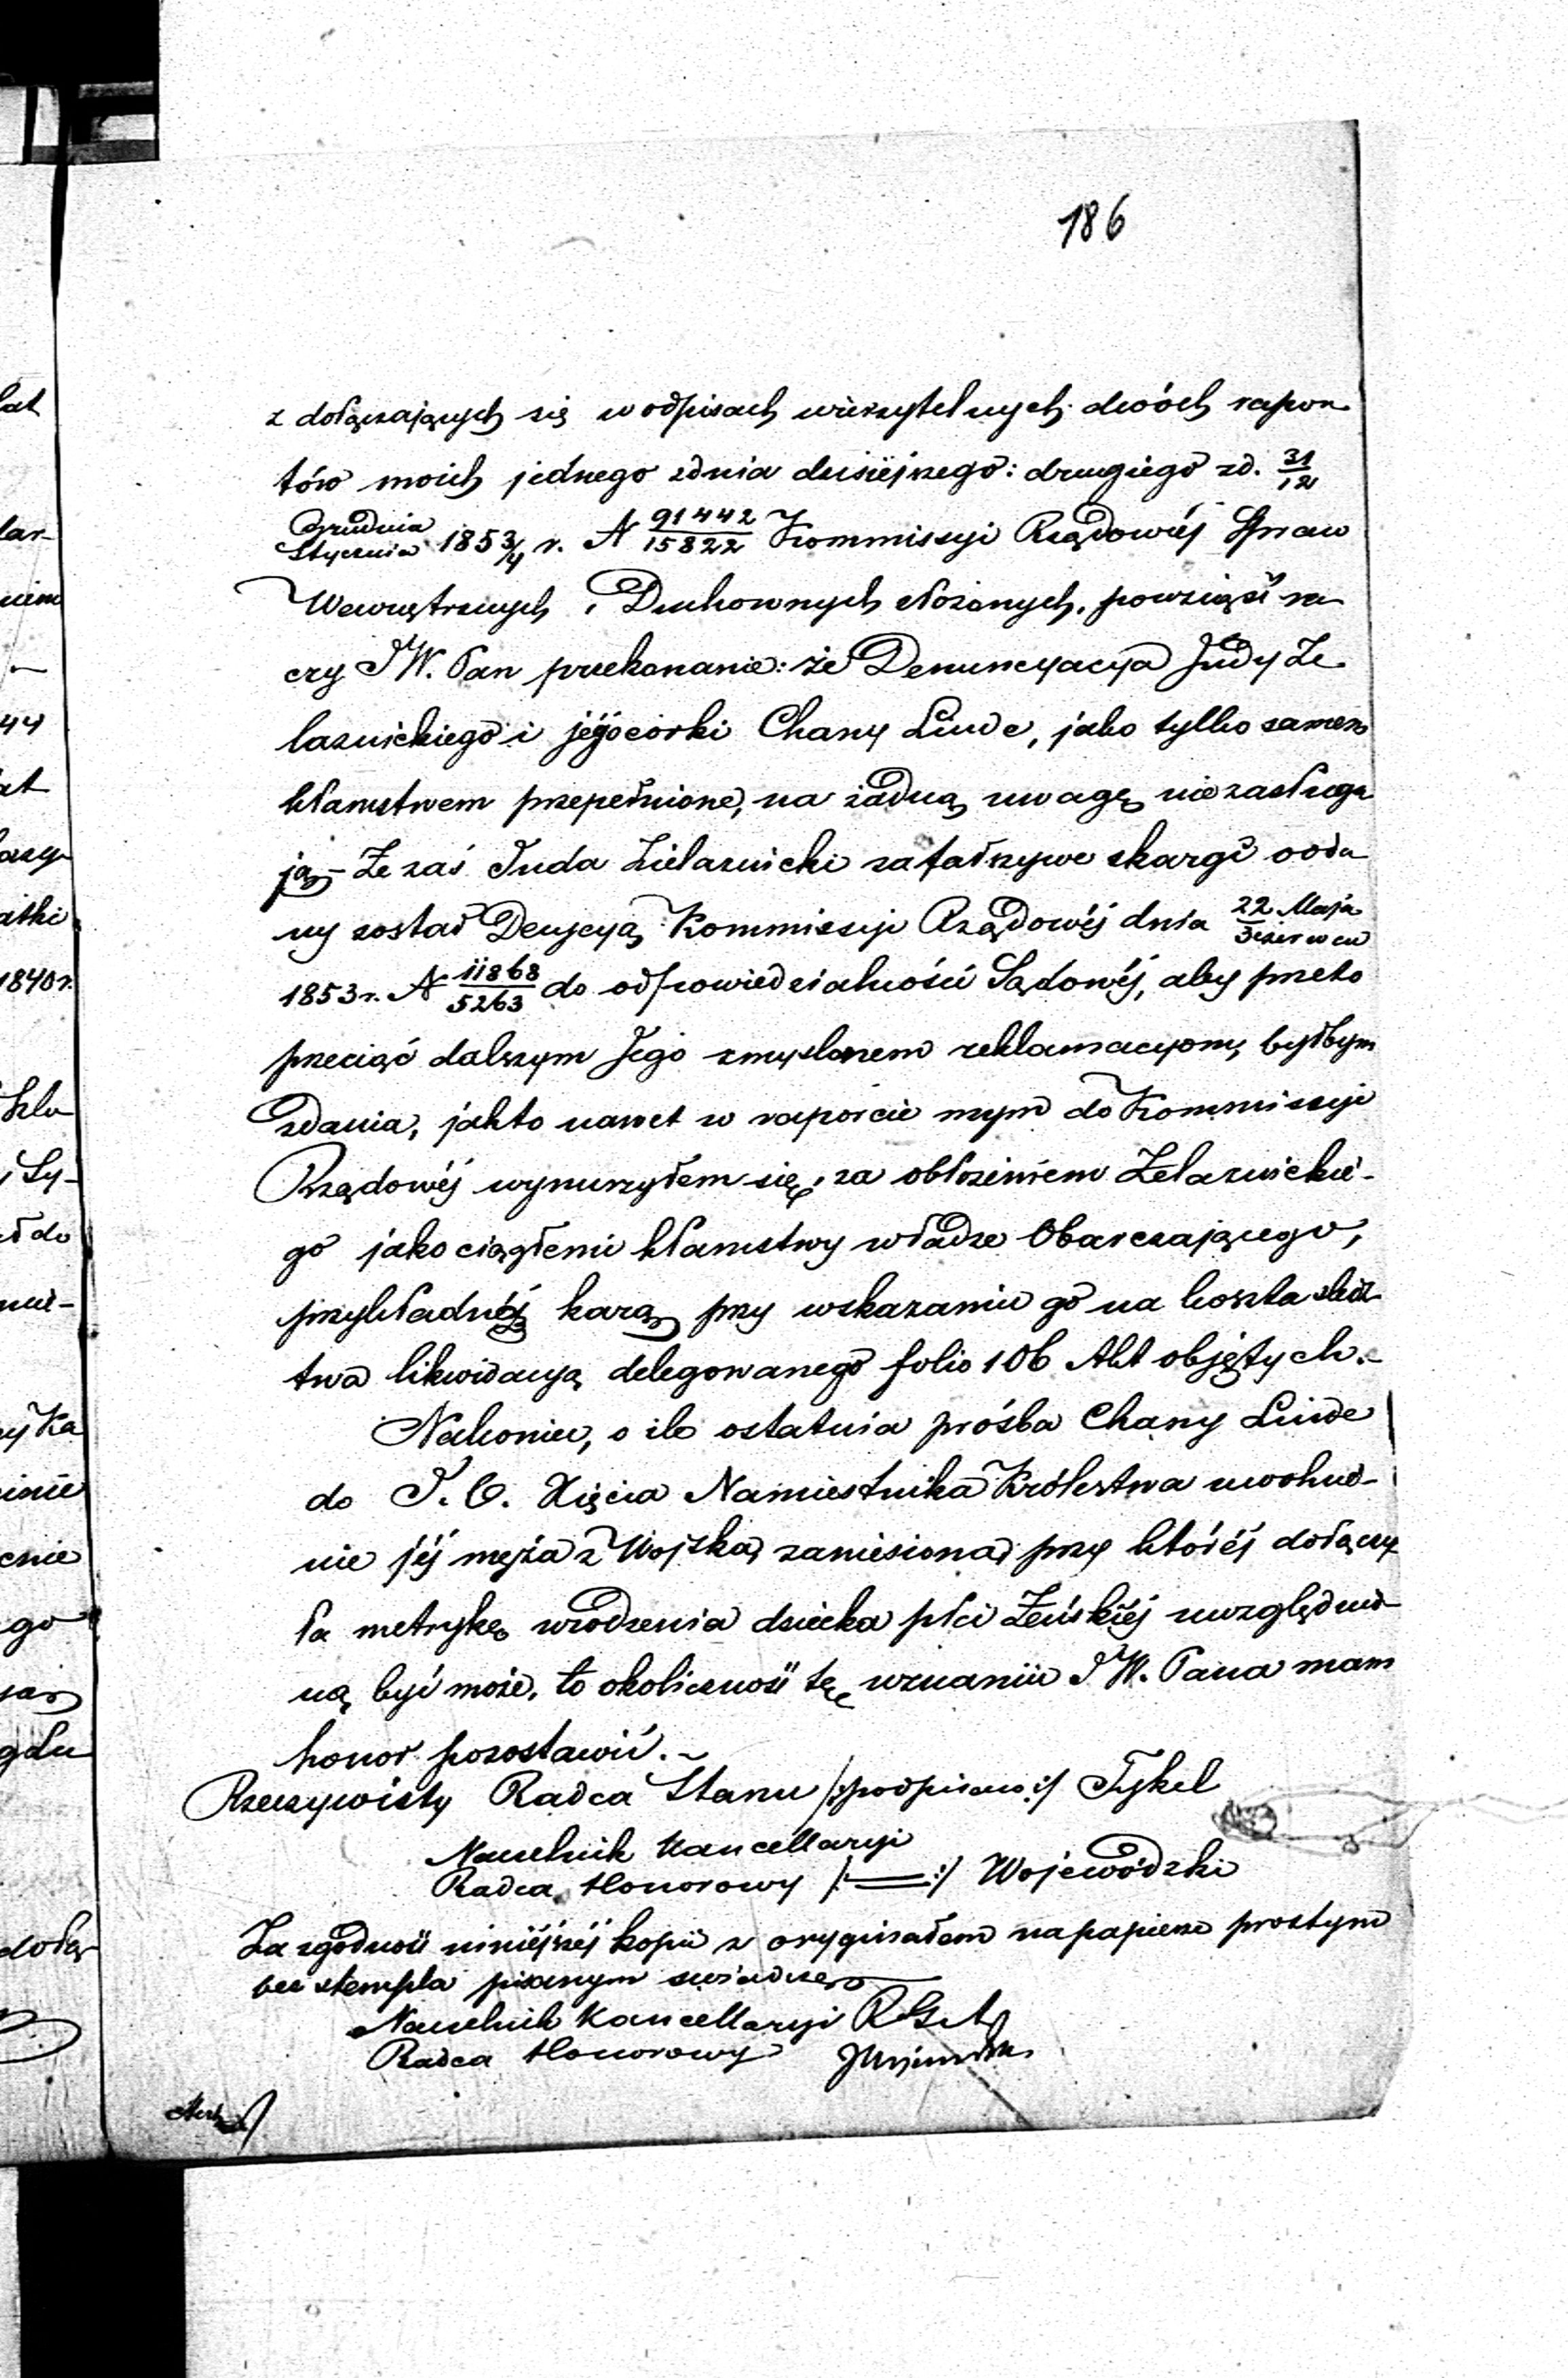 186
z dołączających się w odpisach wierzytelnych dwóch rapor
tów moich jednego z dnia dzisiéjszego: drugiego z d. 31/12
Grudnia/Stycznia 1853/4 r. N 91442/15822 Kommissyi Rządowéj Spraw
Wewnętrznych i Duchownych złożonych, powziąść ra
czy JW. Pan przekonanie: że Denuncyacya Judy Że
laznickiego i jego córki Chany Liwde, jako tylko samem
kłamstwem przepełnione, na żadną uwagę nie zasługu
ją – Że zaś Juda Żielaznicki za fałszywe skargi odda
ny został Decyzyą Kommissyi Rządowéj dnia 22 Maja/3 czerwca
1853 r. N 11868/5263 do odpowiedzialności Sądowéj, aby przeto
przeciąć dalszym Jego zmyślonem reklamacyom, byłbym
zdania, jak to nawet w raporcie mym do Kommissyi
Rządowéj wynurzyłem się, za obłożeniem Żelaznickie-
go jako ciągłemi kłamstwy władze Obarczającego,
przykładną karą przy wskazaniu go na koszta śledz
twa likwidacyą delegowanego folio 106 Akt objętych.–
Nakoniec, o ile ostatnia prośba Chany Liwde
do J. O. Xięcia Namiestnika Królestwa uwolnie-
nie jéj męża z Wojska, zaniesiona, przy któréj dołączy
ła metrykę urodzenia dziecka płci Żeńskiéj uwzględnio
ną być może, to okoliczność tę uznaniu JW. Pana mam
honor pozostawić.–
Rzeczywisty Radca Stanu /:podpisano:/ Tykel
Naczelnik Kancellaryi
Radca Honorowy /:=:/ Wojewódzki
Za zgodność niniéjszéj kopii z oryginałem na papierze prostym
bez stempla pisanym świadczę
Naczelnik Kancellaryi
Radca Honorowy